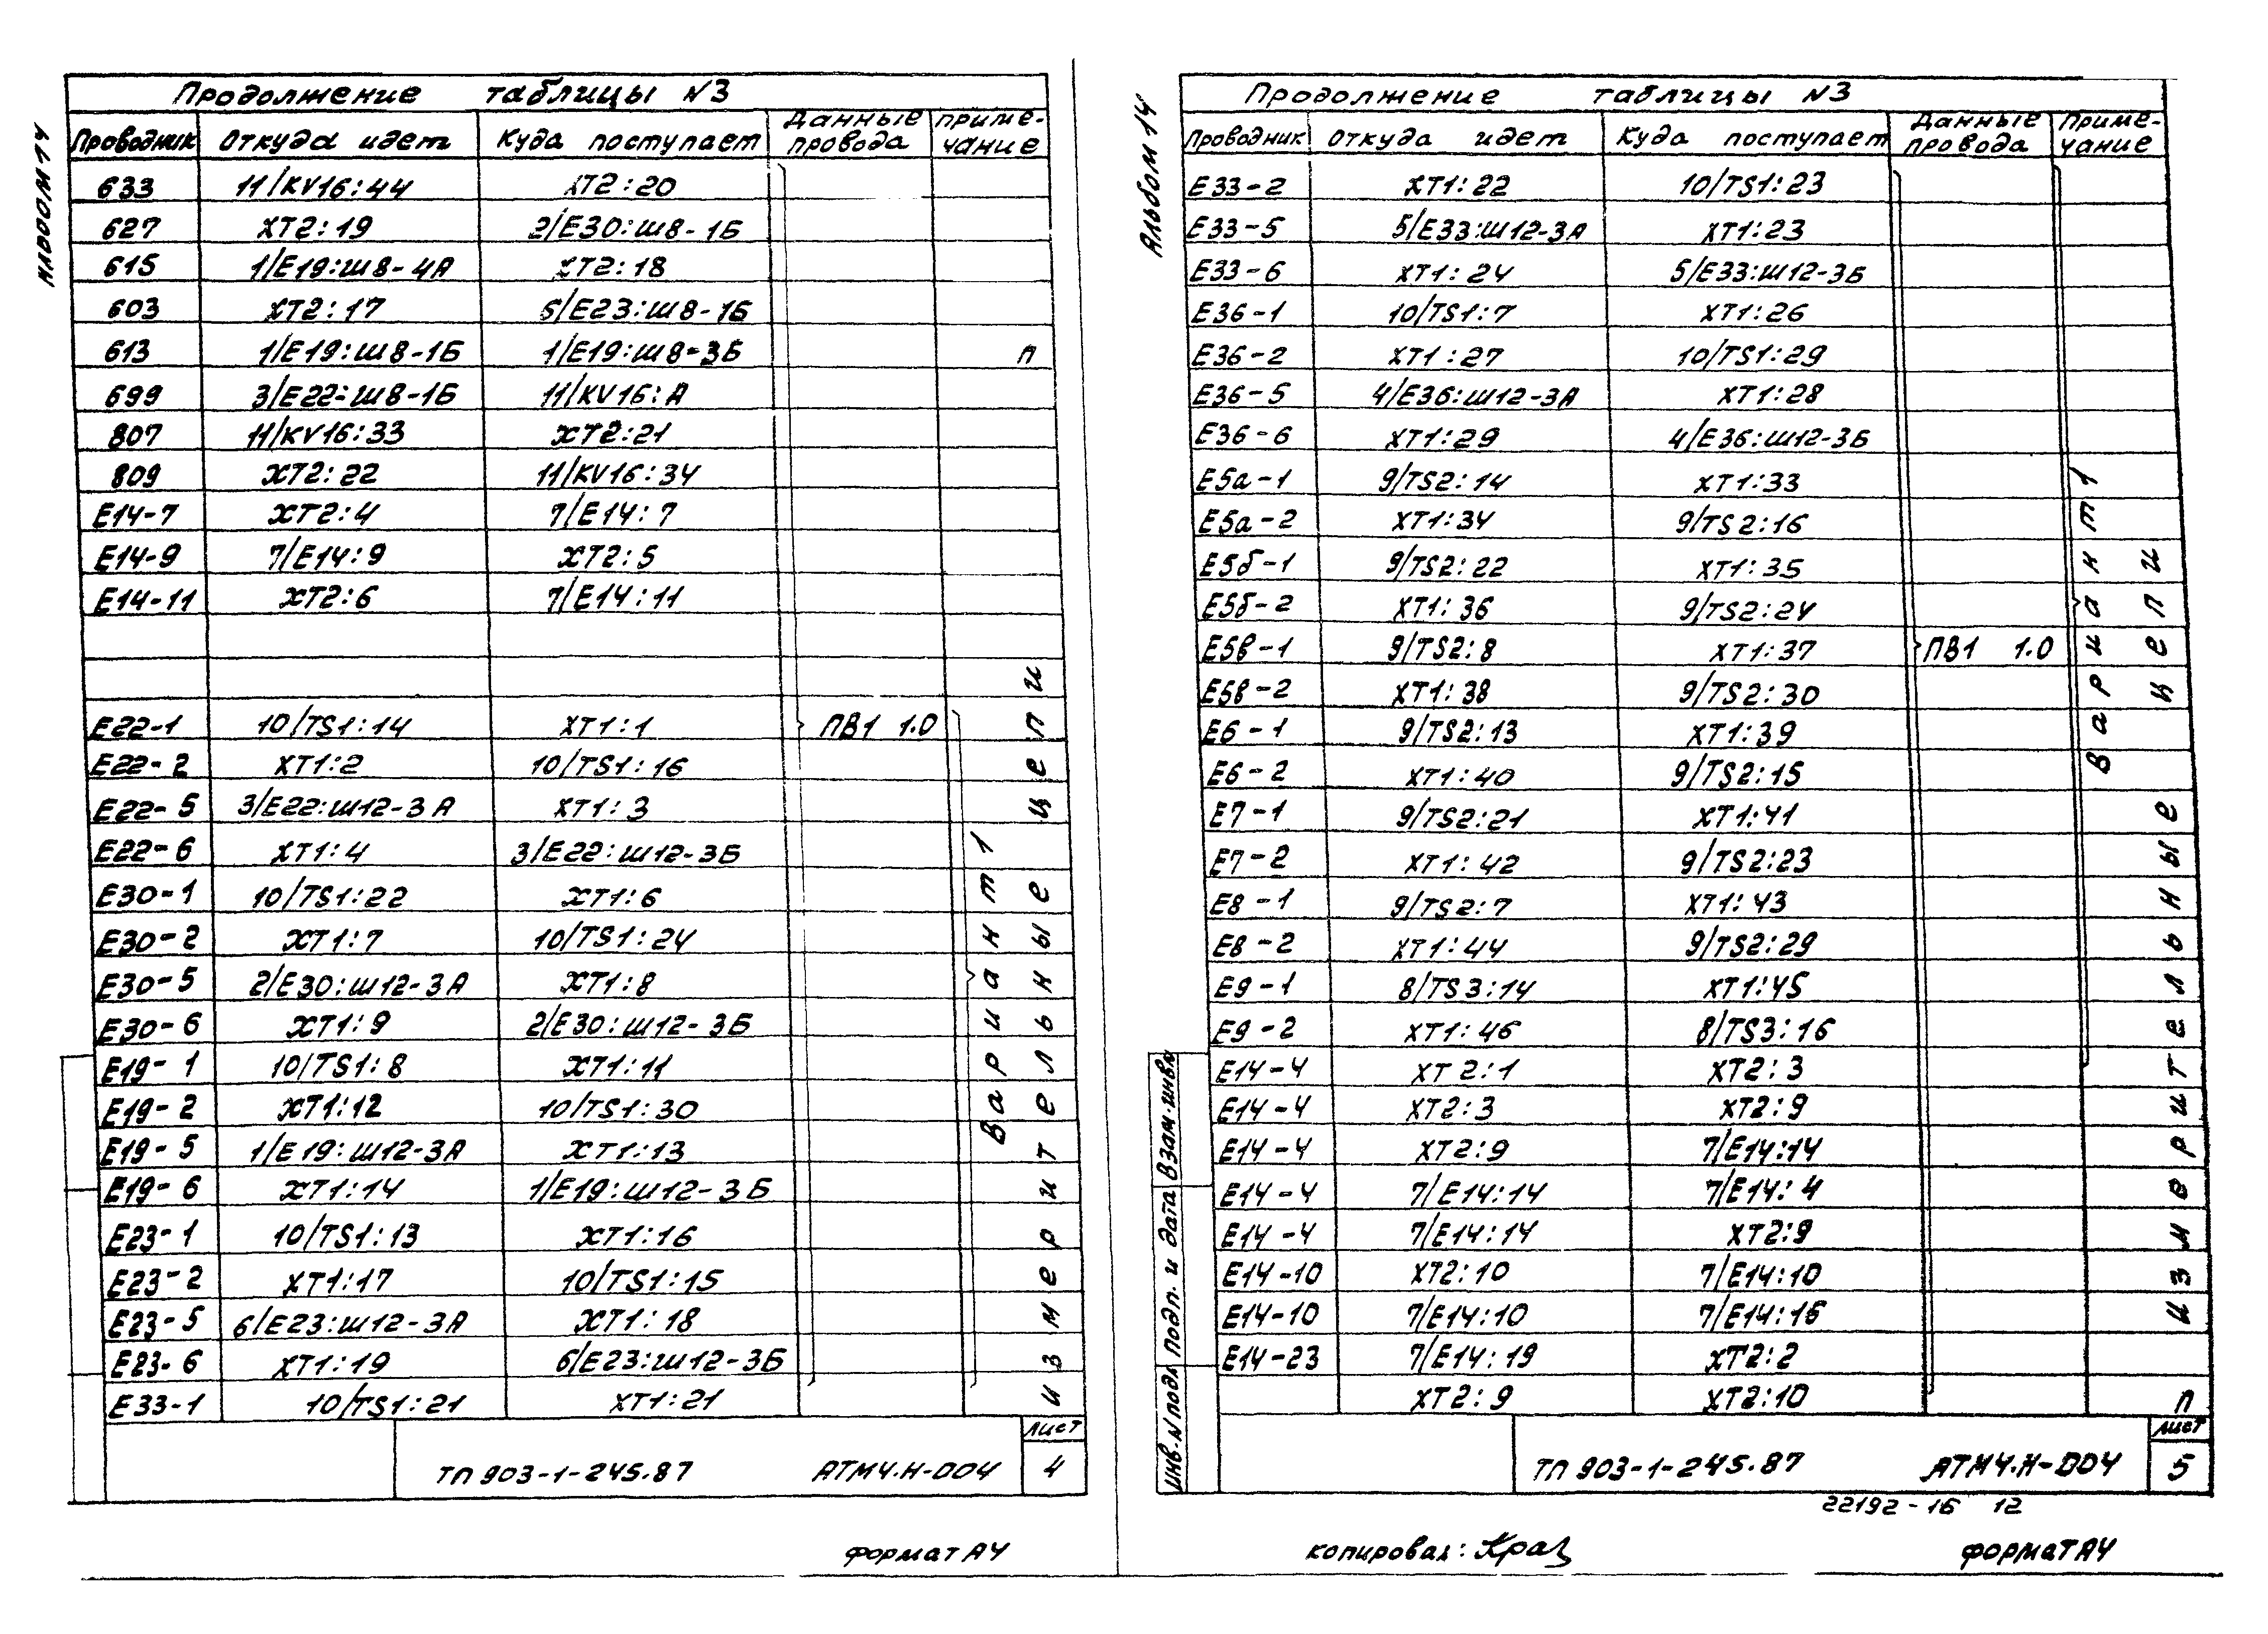 Альбом 14
Продолжение таблицы N3
Проводник Откуда идет Куда поступает Данные провода Примечание
633 11/KV16:44 XT2:20
627 XT2:19 2/E30:Ш8-1Б
615 1/E19:Ш8-4А XT2:18
603 XT2:17 6/E23:Ш8-1Б
613 1/E19:Ш8-1Б 1/E19:Ш8-3Б п
699 3/E22:Ш8-1Б 11/KV16:А
807 11/KV16:33 XT2:21
809 XT2:22 11/KV16:34
E14-7 XT2:4 7/E14:7
E14-9 7/E14:9 XT2:5
E14-11 XT2:6 7/E14:11
E22-1 10/TS1:14 XT1:1 ПВ1 1.0
E22-2 XT1:2 10/TS1:16
E22-5 3/E22:Ш12-3А XT1:3
E22-6 XT1:4 3/E22:Ш12-3Б
E30-1 10/TS1:22 XT1:6
E30-2 XT1:7 10/TS1:24
E30-5 2/E30:Ш12-3А XT1:8
E30-6 XT1:9 2/E30:Ш12-3Б
E19-1 10/TS1:8 XT1:11
E19-2 XT1:12 10/TS1:30
E19-5 1/E19:Ш12-3А XT1:13
E19-6 XT1:14 1/E19:Ш12-3Б
E23-1 10/TS1:13 XT1:16
E23-2 XT1:17 10/TS1:15
E23-5 6/E23:Ш12-3А XT1:18
E23-6 XT1:19 6/E23:Ш12-3Б
E33-1 10/TS1:21 XT1:21
Вариант 1
Измерительные цепи
ТП 903-1-245.87 АТМ4.Н-ДО4
Лист
4
Формат А4
Альбом 14
Продолжение таблицы N3
Проводник Откуда идет Куда поступает Данные провода Примечание
E33-2 XT1:22 10/TS1:23
E33-5 5/E33:Ш12-3А XT1:23
E33-6 XT1:24 5/E33:Ш12-3Б
E36-1 10/TS1:7 XT1:26
E36-2 XT1:27 10/TS1:29
E36-5 4/E36:Ш12-3А XT1:28
E36-6 XT1:29 4/E36:Ш12-3Б
E5а-1 9/TS2:14 XT1:33
E5а-2 XT1:34 9/TS2:16
E5б-1 9/TS2:22 XT1:35
E5б-2 XT1:36 9/TS2:24
E5в-1 9/TS2:8 XT1:37 ПВ1 1.0
E5в-2 XT1:38 9/TS2:30
E6-1 9/TS2:13 XT1:39
E6-2 XT1:40 9/TS2:15
E7-1 9/TS2:21 XT1:41
E7-2 XT1:42 9/TS2:23
E8-1 9/TS2:7 XT1:43
E8-2 XT1:44 9/TS2:29
E9-1 8/TS3:14 XT1:45
E9-2 XT1:46 8/TS3:16
E14-4 XT2:1 XT2:3
E14-4 XT2:3 XT2:9
E14-4 XT2:9 7/E14:14
E14-4 7/E14:14 7/E14:4
E14-4 7/E14:14 XT2:9
E14-10 XT2:10 7/E14:10
E14-10 7/E14:10 7/E14:16
E14-23 7/E14:19 XT2:2
XT2:9 XT2:10 п
Вариант 1
Измерительные цепи
Инв. N подл. Подп. и дата Взам. инв. N
ТП 903-1-245.87 АТМ4.Н-ДО4
Лист
5
22192-16 12
Копировал: Краз
Формат А4